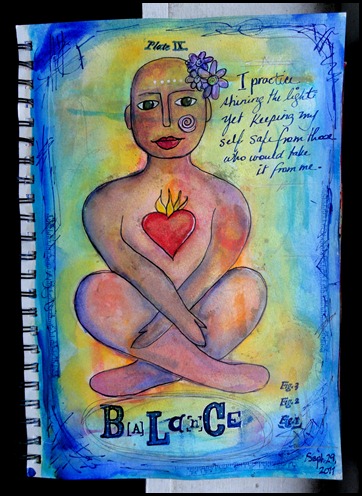 Plate IX.
I practice
shining the light
yet keeping my
self safe from those
who would take
it from me.
Fig. 3
Fig. 2
Fig. 1
B[A]LanCe
Sept. 29,
2011